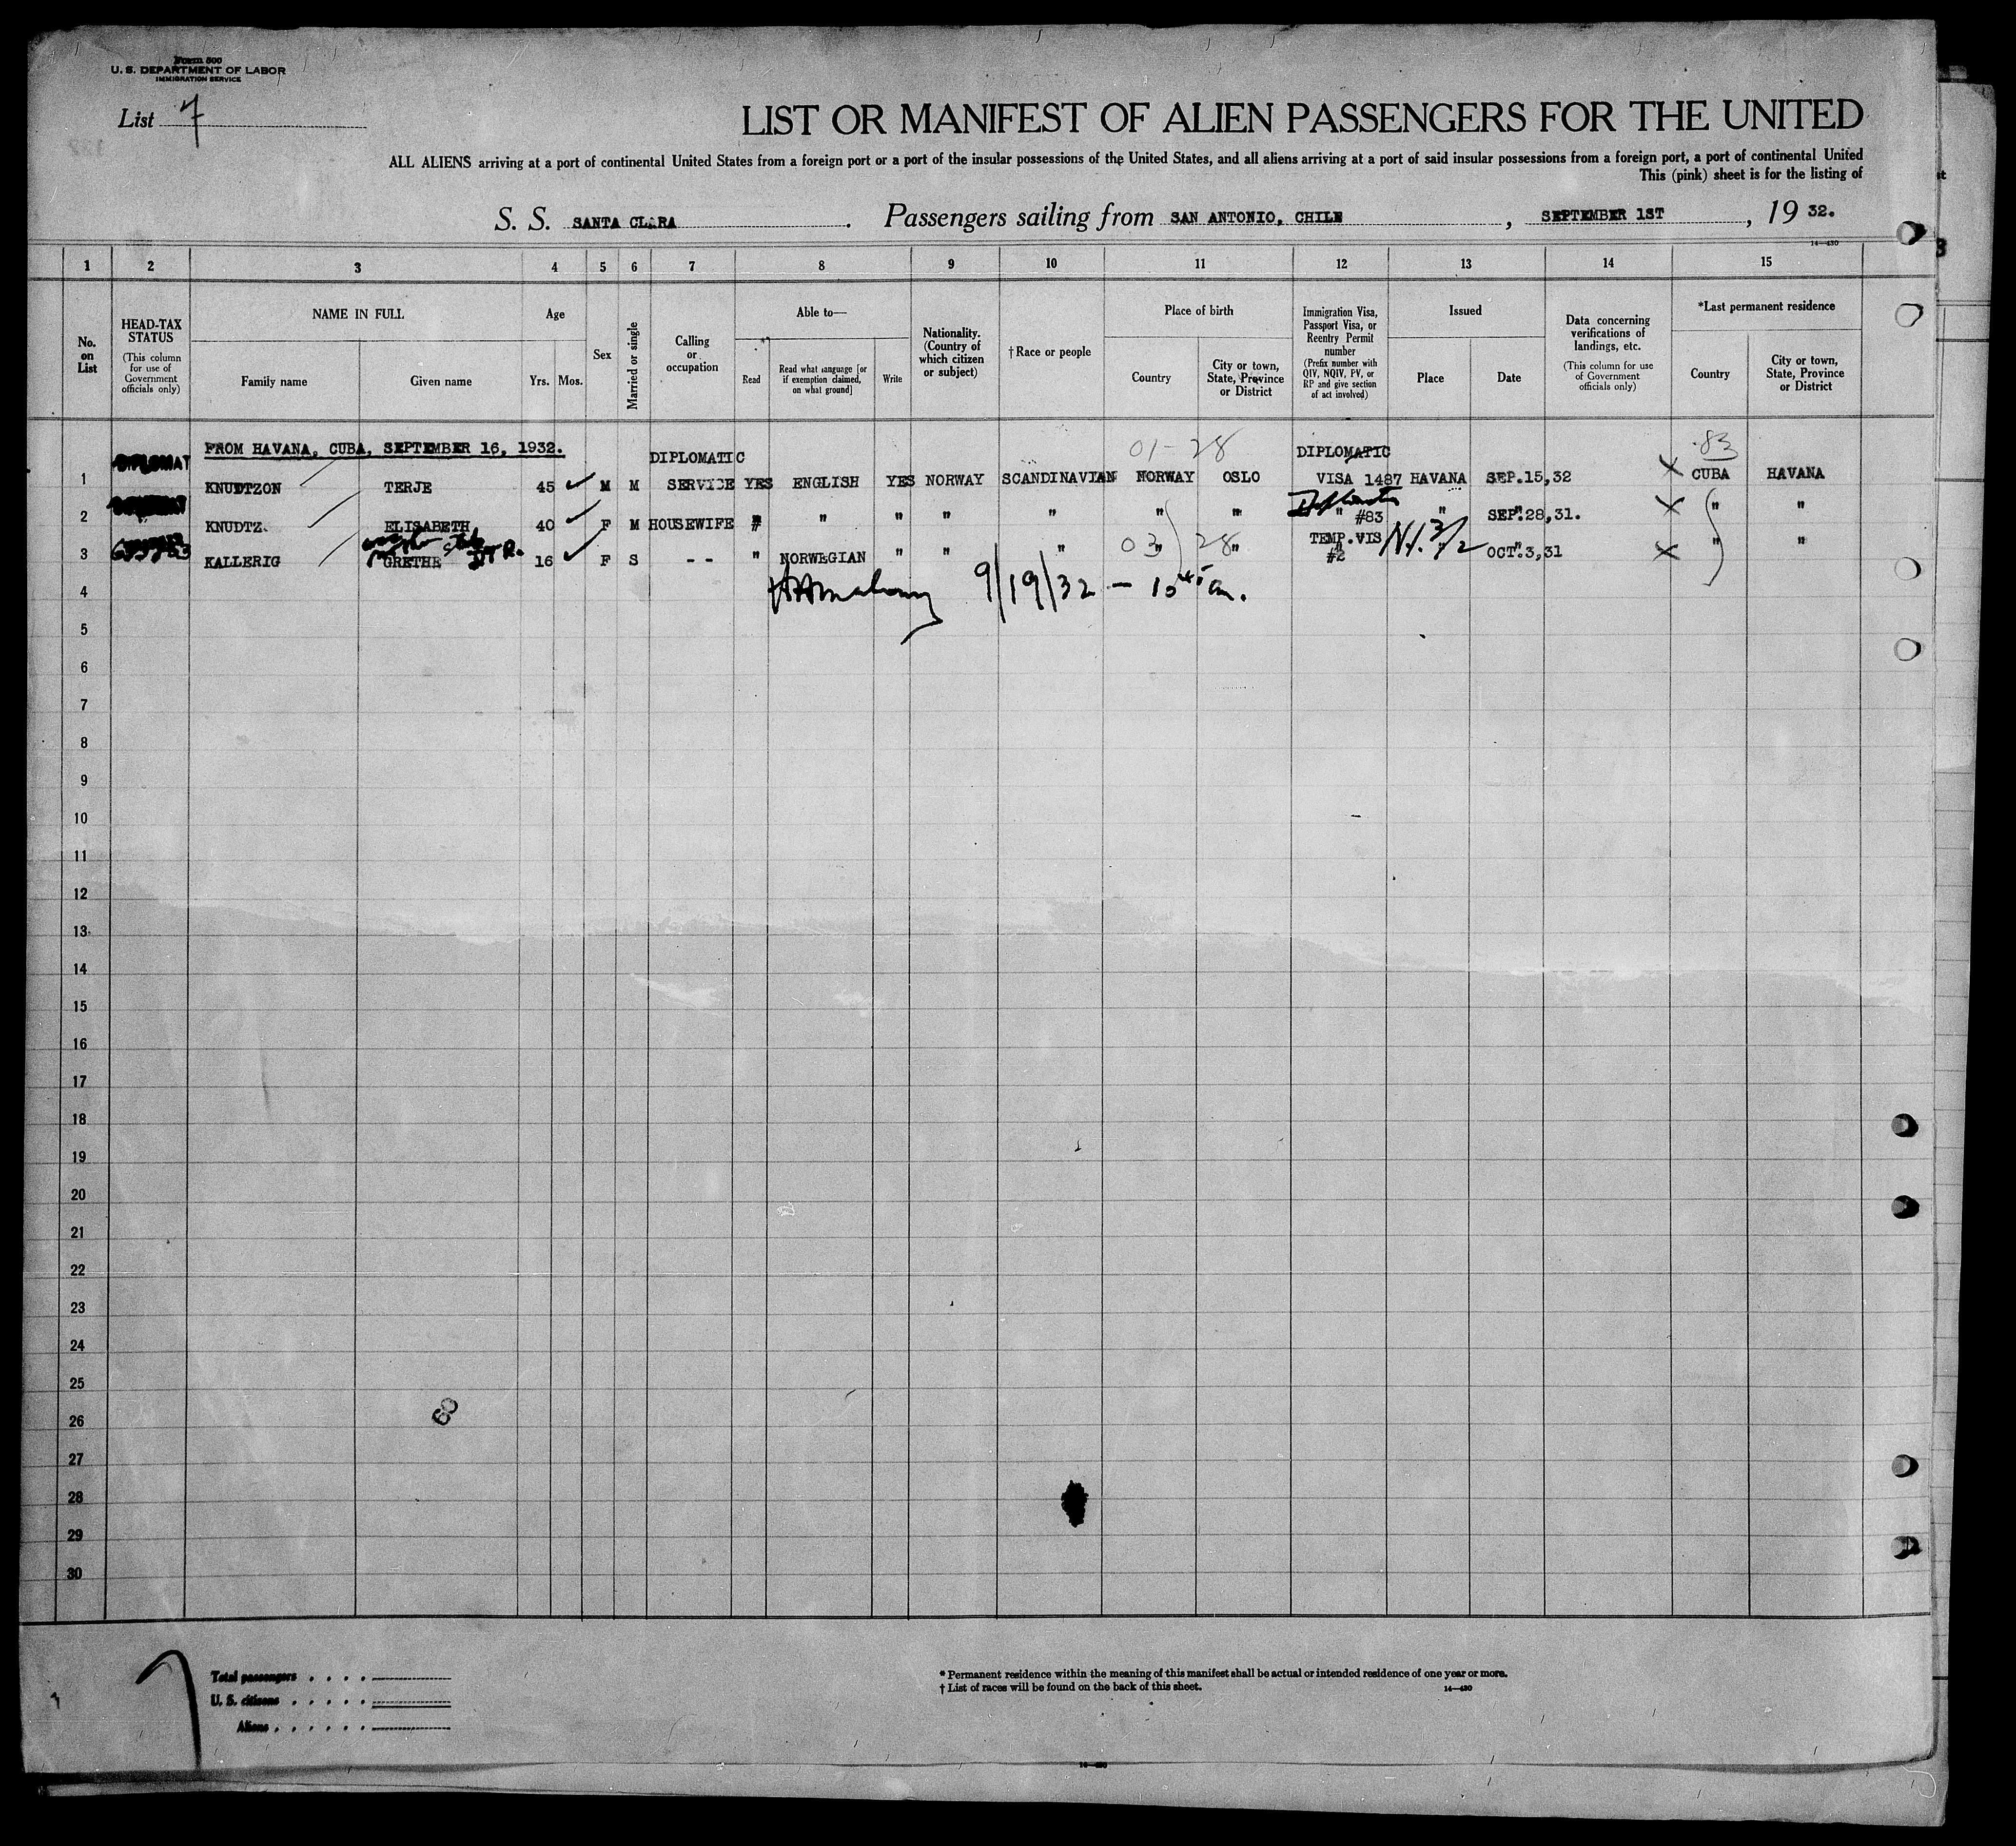 Form 500
U. S. DEPARTMENT OF LABOR
IMMIGRATION SERVICE
List 7
LIST OR MANIFEST OF ALIEN PASSENGERS FOR THE UNITED
ALL ALIENS arriving at a port of continental United States from a foreign port or a port of the insular possessions of the United States, and all aliens arriving at a port of said insular possessions from a foreign port, a port of continental United
This (pink) sheet is for the listing of
S. S. SANTA CLARA. Passengers sailing from SAN ANTONIO, CHILE, SEPTEMBER 1ST, 19 32.
14—430
1 2 3 4 5 6 7 8 9 10 11 12 13 14 15
No. on List
HEAD-TAX STATUS
(This column for use of Government officials only)
NAME IN FULL
Family name
Given name
Age
Yrs. Mos.
Sex
Married or single
Calling or occupation
Able to—
Read
Read what language [or if exemption claimed, on what ground]
Write
Nationality. (Country of which citizen or subject)
† Race or people
Place of birth
Country
City or town, State, Province or District
Immigration Visa, Passport Visa, or Reentry Permit number
(Prefix number with QIV, NQIV, PV, or RP and give section of act involved)
Issued
Place
Date
Data concerning verifications of landings, etc.
(This column for use of Government officials only)
*Last permanent residence
Country
City or town, State, Province or District
FROM HAVANA, CUBA, SEPTEMBER 16, 1932.
01-28
83
DIPLOMATIC DIPLOMATIC
1 KNUDTZON TERJE 45 M M SERVICE YES ENGLISH YES NORWAY SCANDINAVIAN NORWAY OSLO VISA 1487 HAVANA SEP.15,32 X CUBA HAVANA
2 KNUDTZ ELISABETH 40 F M HOUSEWIFE " " " " " " " " #83 " SEP.28,31. X " "
TEMP.VIS
3 KALLERIG GRETHE 16 F S - - " NORWEGIAN " " " 03 " 28 " #2 3/2 " OCT.3,31 X " "
9/19/32 — 10 45 am.
4
5
6
7
8
9
10
11
12
13
14
15
16
17
18
19
20
21
22
23
24
25
26
27
28
29
30
Total passengers
U. S. citizens
Aliens
* Permanent residence within the meaning of this manifest shall be actual or intended residence of one year or more.
† List of races will be found on the back of this sheet.
14—430